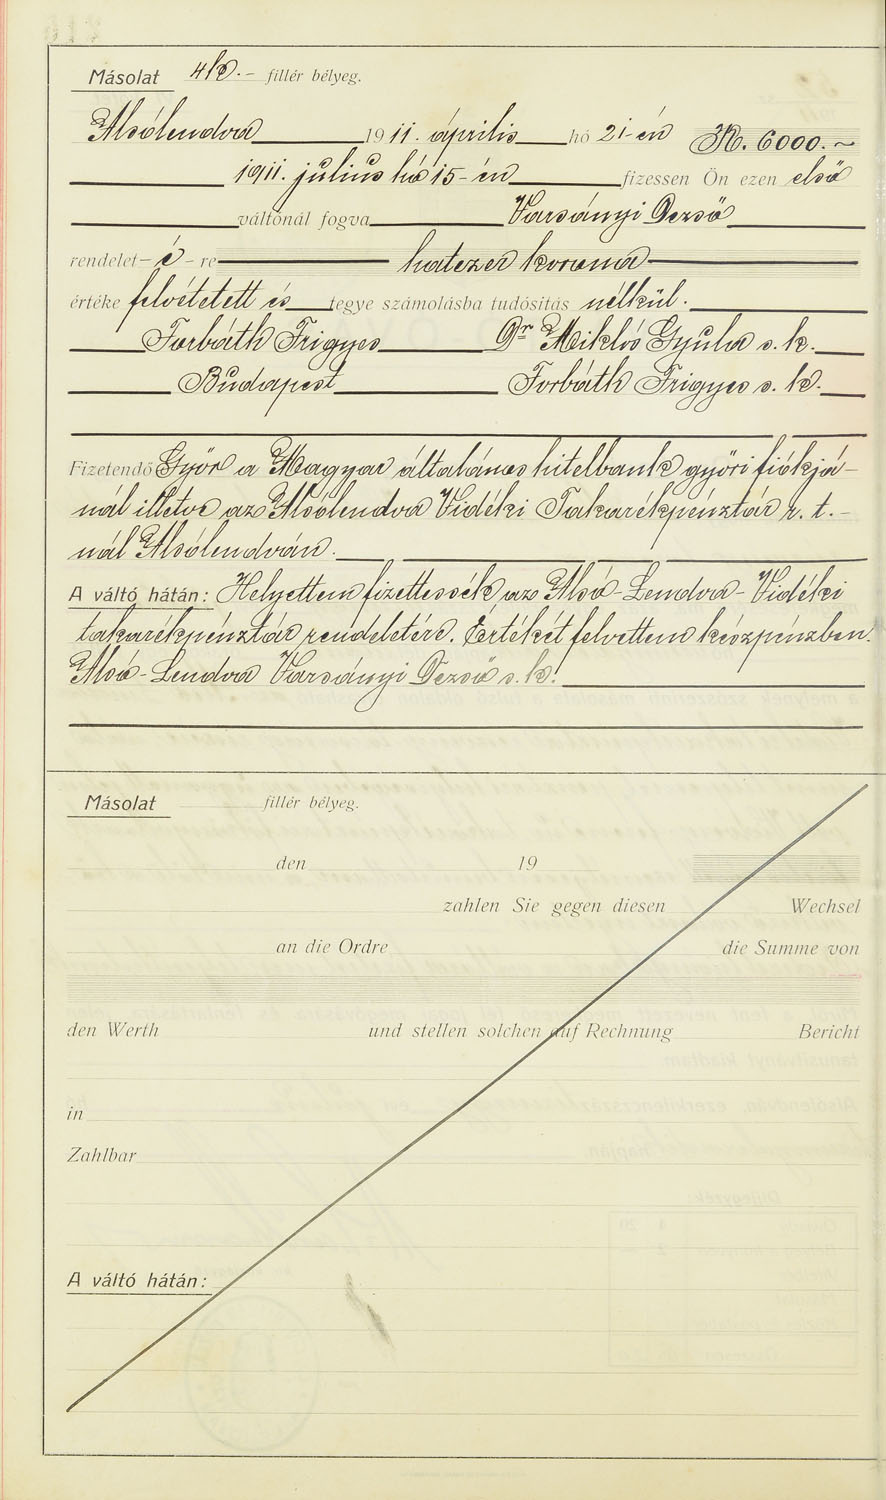 Másolat 4 K.- fillér bélyeg.
Alsólendva 1911. április hó 21-én K. 6000.~
1911. július hó 15-én fizessen Ön ezen első
váltónál fogva Varsányi Dezső
rendelet-é-re hatezer korona
értéke felvétetett és tegye számolásba tudósítás nélkül.
Forbáth Frigyes Dr Miklós Gyula s. k.
Budapest Forbáth Frigyes s. k.
Fizetendő Győr a Magyar általános hitelbank győri fiókjá-
nál illetve az Alsólendva Vidéki Takarékpénztár r. t.-
nál Alsólendván.
A váltó hátán: Helyettem fizettessék az Alsó-Lendva-Vidéki
takarékpénztár rendeletére. Értékét felvettem készpénzben.
Alsó-Lendva Varsányi Dezső s. k.
Másolat fillér bélyeg.
den 19
zahlen Sie gegen diesen Wechsel
an die Ordre die Summe von
den Werth und stellen solchen auf Rechnung Bericht
in
Zahlbar
A váltó hátán: